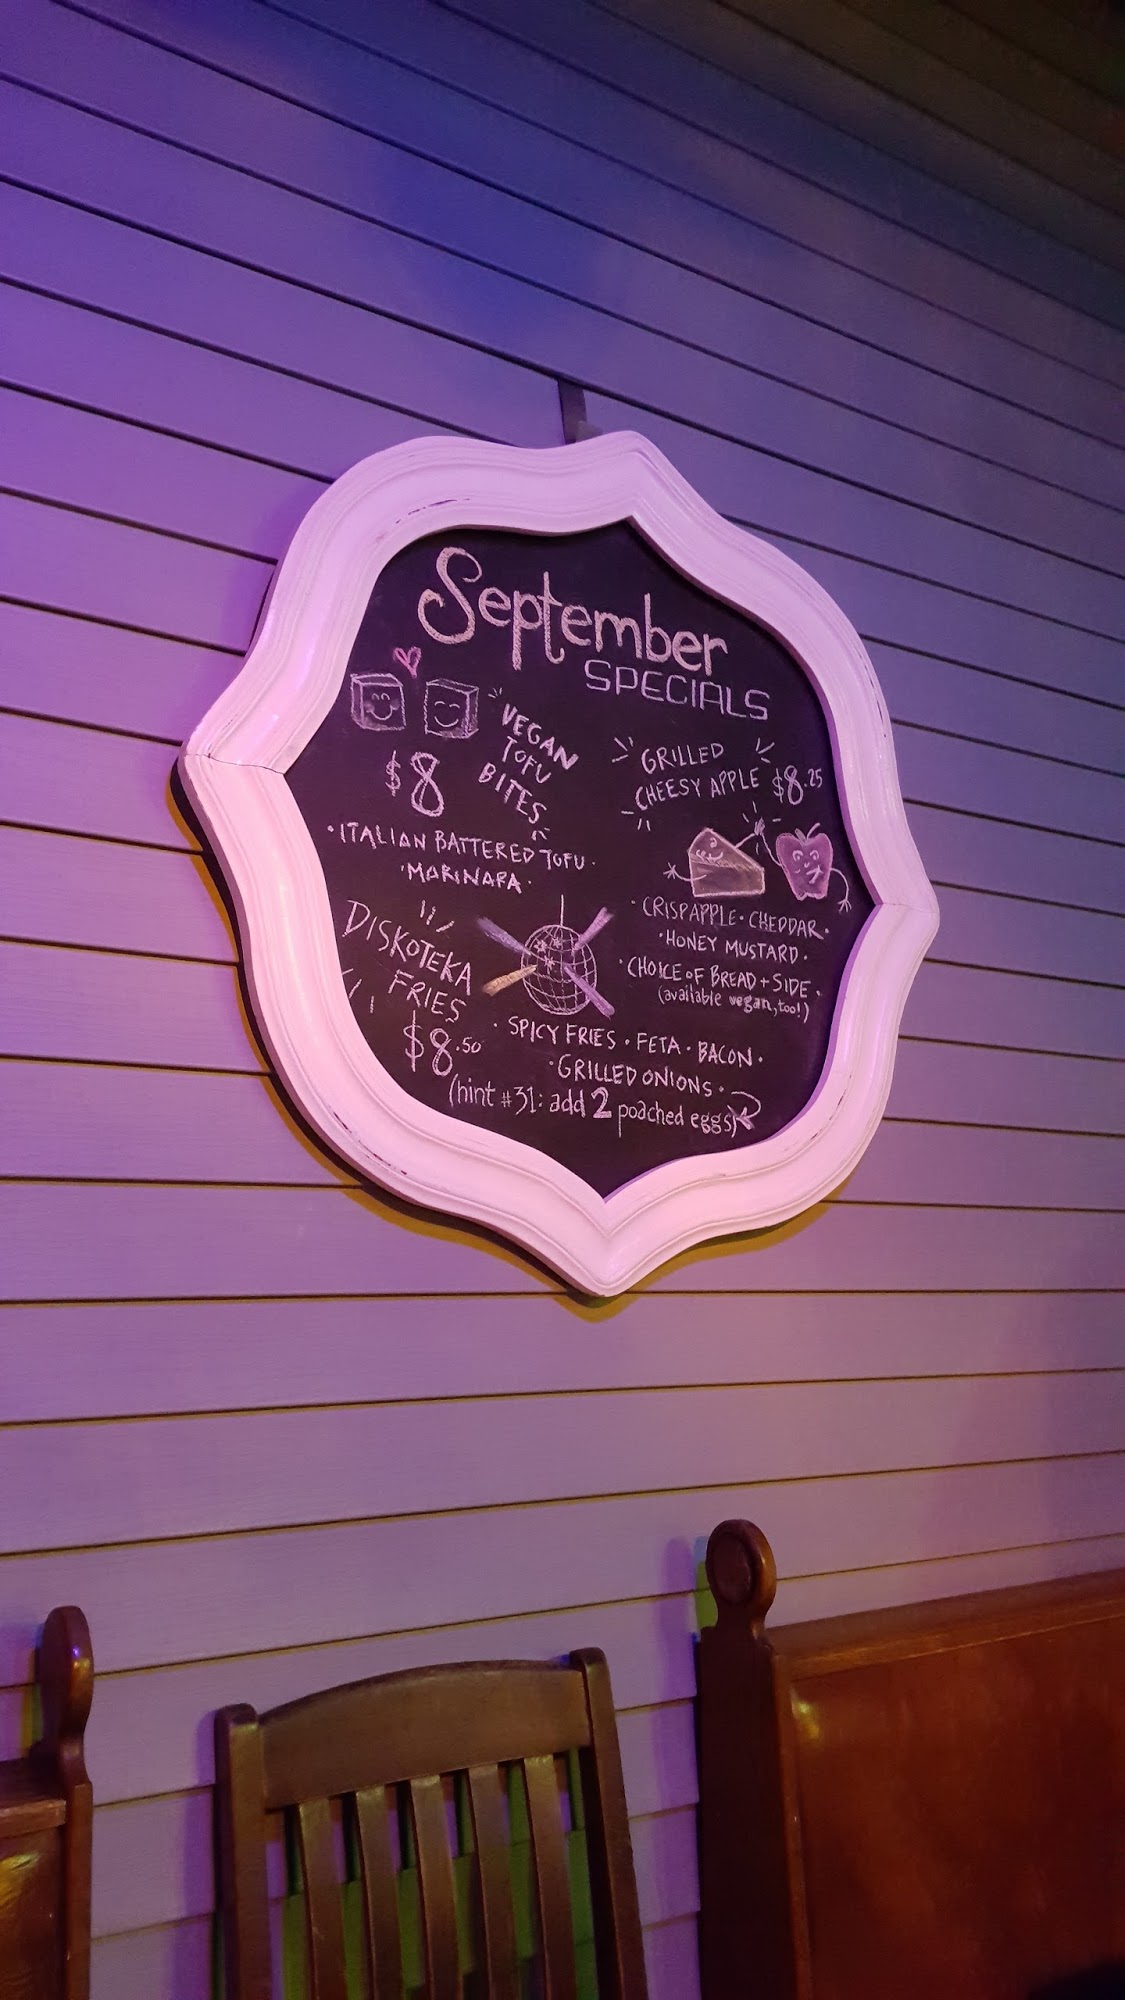 September
SPECIALS
VEGAN
TOFU
BITES
$8
·ITALIAN BATTERED TOFU·
·MARINARA·
GRILLED
CHEESY APPLE $8.25
·CRISP APPLE·CHEDDAR·
·HONEY MUSTARD·
·CHOICE OF BREAD + SIDE·
(available vegan, too!)
DISKOTEKA
FRIES
$8.50
·SPICY FRIES·FETA·BACON·
·GRILLED ONIONS·
(hint #31: add 2 poached eggs)